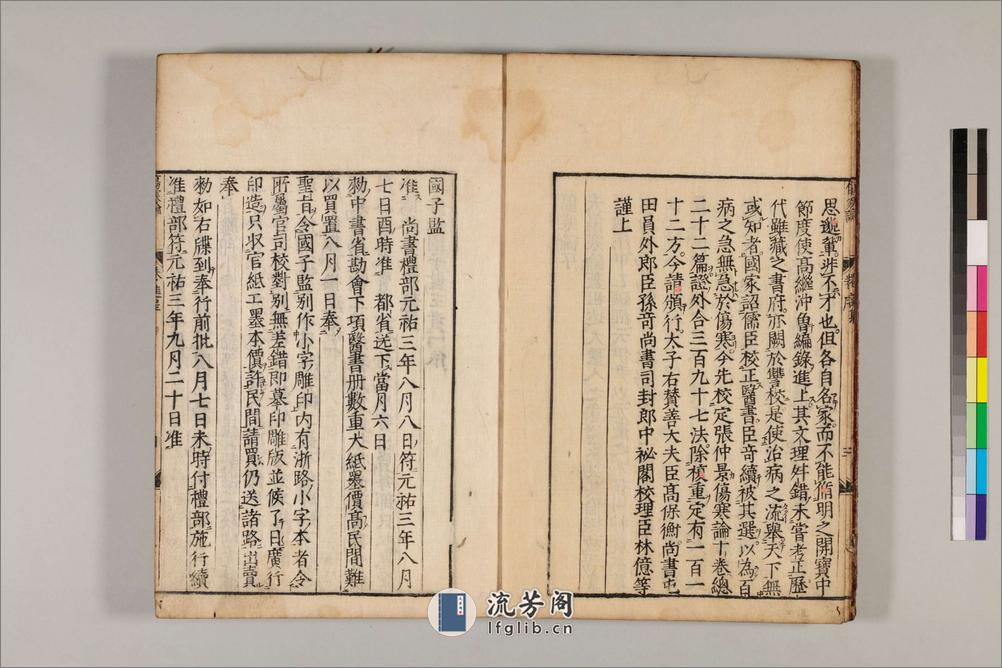 思邈輩非不才也但各自名家而不能脩明之開寶中
節度使高繼沖曽編錄進上其文理舛錯未甞考正歷
代雖藏之書府亦闕於讐校是使治病之流舉天下無
或知者國家詔儒臣校正醫書臣竒續被其選以為百
病之急無急於傷寒今先校定張仲景傷寒論十卷總
二十二篇證外合三百九十七法除複重定有一百一
十二方今請頒行太子右贊善大夫臣高保衡尚書屯
田員外郎臣孫竒尚書司封郎中祕閣校理臣林億等
謹上
國子監
准
尚書禮部元祐三年八月八日符元祐三年八月
七日酉時准
都省送下當月六日
勑中書省勘會下項醫書冊數重大紙墨價高民間難
以買置八月一日奉
聖旨令國子監別作小字雕印內有浙路小字本者令
所屬官司校對別無差錯即摹印雕版並候了日廣行
印造只收官紙工墨本價許民間請買仍送諸路出賣
奉
勑如右牒到奉行前批八月七日未時付禮部施行續
准禮部符元祐三年九月二十日准
流芳阁
lfglib.cn